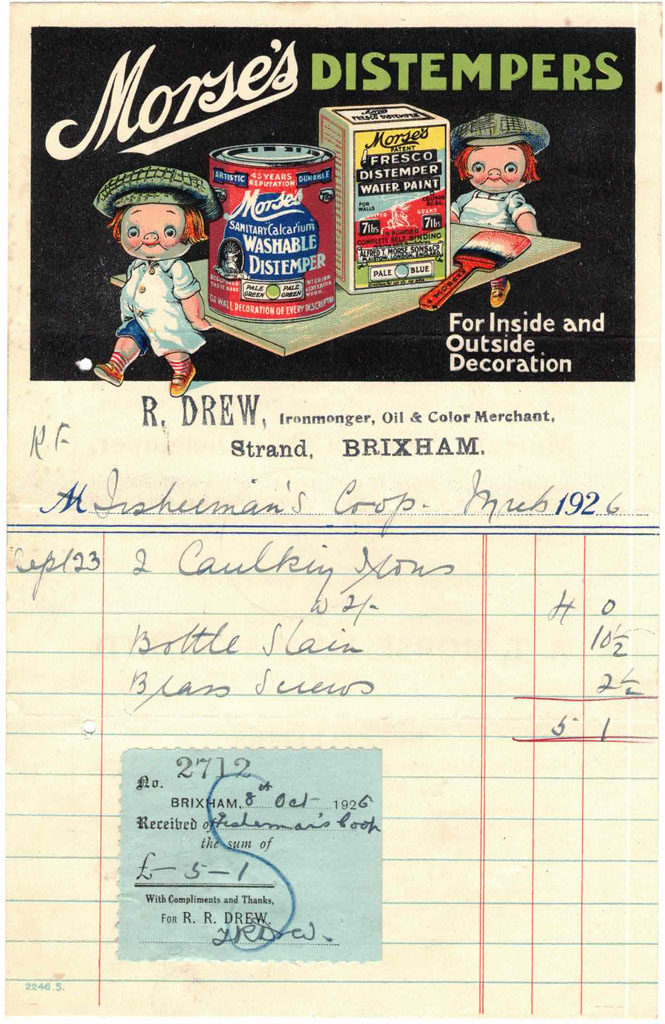 Morse's DISTEMPERS
ARTISTIC 45 YEARS REPUTATION DURABLE
Morse's
SANITARY Calcarium
WASHABLE
DISTEMPER
PALE GREEN PALE GREEN
FOR WALL DECORATION OF EVERY DESCRIPTION
Morse's
FRESCO DISTEMPER
Morse's
PATENT
FRESCO
DISTEMPER
WATER PAINT
FOR WALLS
7lbs 7lbs
IN POWDER
COMPLETE SELF BINDING
ALFRED T. MORSE SONS & Co
PALE BLUE
MORSE'S
For Inside and
Outside
Decoration
R. DREW, Ironmonger, Oil & Color Merchant,
Strand, BRIXHAM.
M Fisherman's Coop. 1926
Sept 23 2 Caulking Irons
2/- 4 0
Bottle Stain 10½
Brass Screws 2½
5 1
No. 2712
BRIXHAM, 8th Oct 1926
Received of Fisherman's Coop
the sum of
£-5-1
With Compliments and Thanks,
FOR R. R. DREW.
2246.S.